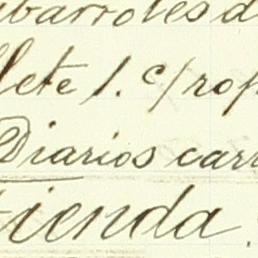 abarrotes d
lete 1. c/rop
Diarios carr
Tienda.